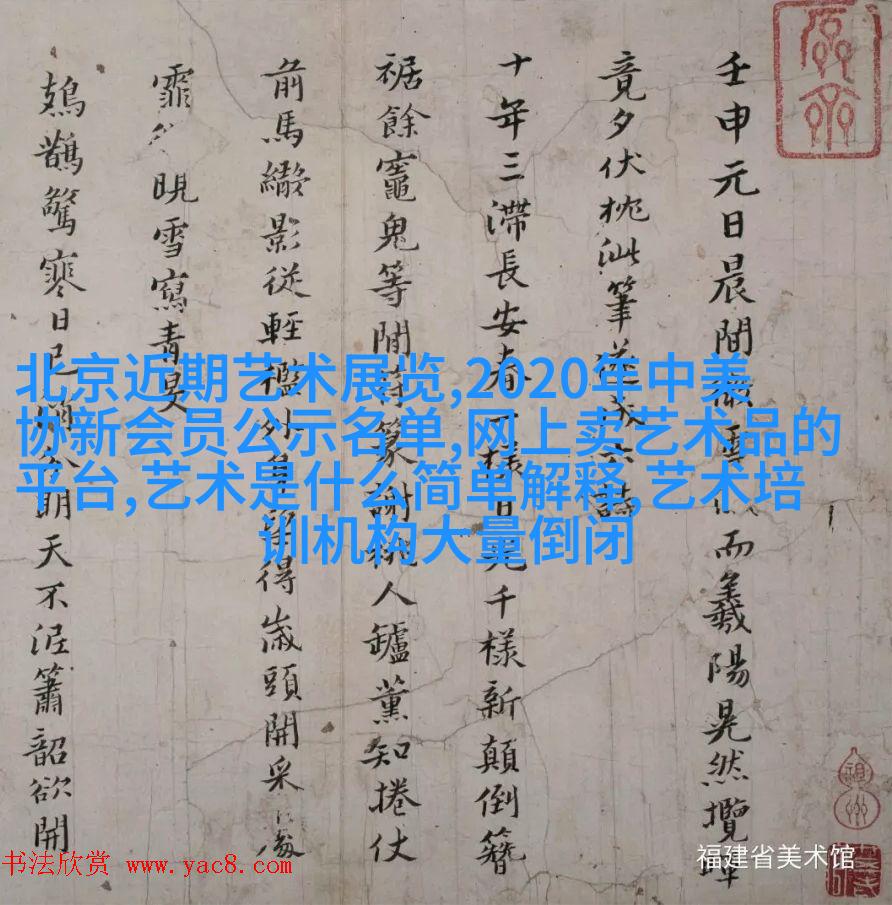 壬申元日晨間微雪俄而羲陽晃然攬
竟夕伏枕泚筆遂成六詩
十年三滯長安春一樣日光千樣新顛倒簪
裾餘竈鬼等閒符篆謝桃人鑪薰知捲仗
前馬纈影從輕檻外身留得歲頭開采
霏 晛雪寫青旻
鳷鵲驚寒日 天不涇簫韶欲開
北京近期艺术展览,2020年中美
协新会员公示名单,网上卖艺术品的
平台,艺术是什么简单解释,艺术培
训机构大量倒闭
书法欣赏 www.yac8.com
福建省美术馆